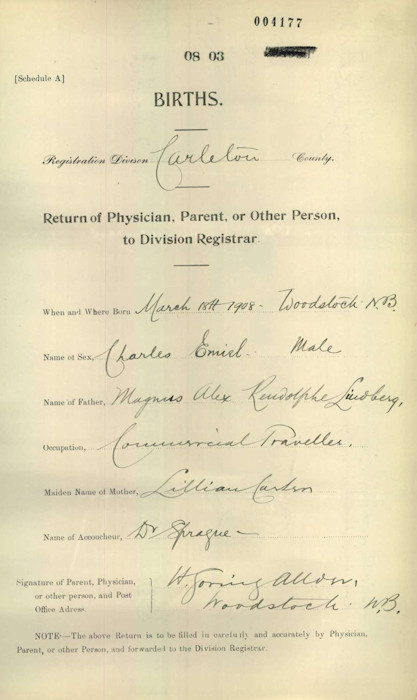 004177
08 03
[Schedule A]
BIRTHS.
Registration Divison Carleton County.
Return of Physician, Parent, or Other Person,
to Division Registrar
When and Where Born March 18th 1908 - Woodstock N.B.
Name of Sex, Charles Emiel. Male
Name of Father, Magnus Alex Randolphe Lindberg,
Occupation, Commercial Traveller.
Maiden Name of Mother, Lillian
Name of Accoucheur, Dr Sprague -
Signature of Parent, Physician,
or other person, and Post
Office Adress.
H. Loring
Woodstock. N.B.
NOTE—The above Return is to be filled in carefully and accurately by Physician,
Parent, or other Person, and forwarded to the Division Registrar.